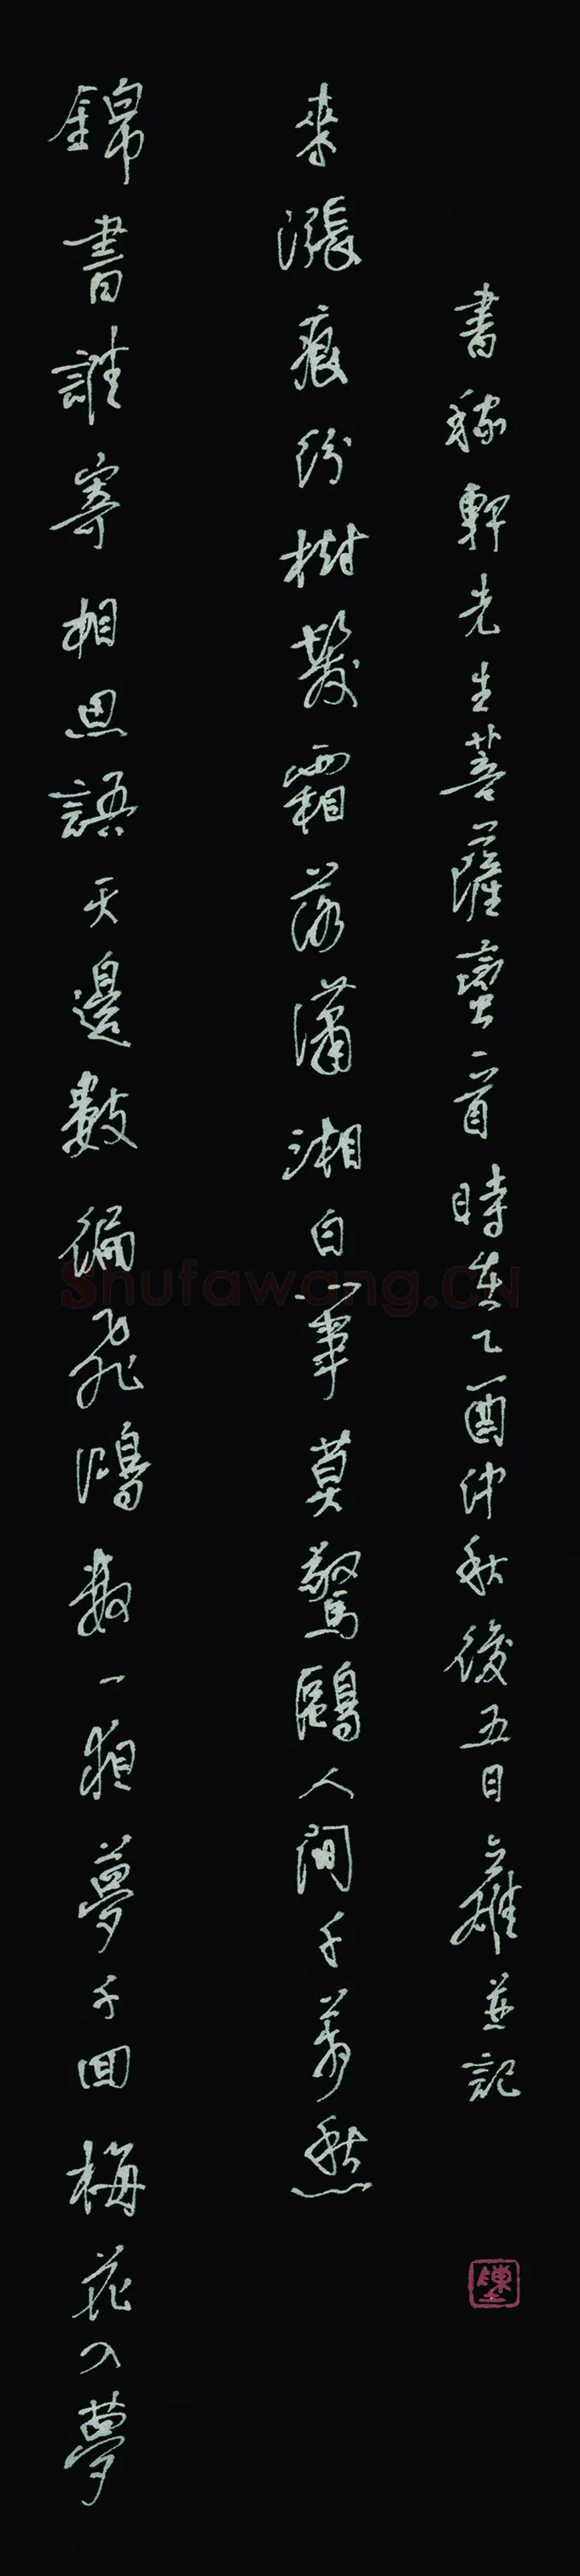 錦書誰寄相思語天邊數徧飛鴻數一夜夢千回梅花入夢
來漲痕紛樹髮霜落瀟湘白心事莫驚鷗人間千萬愁
書稼軒先生菩薩蠻一首時在乙酉仲秋後五日雍並記
Shufawang.CN